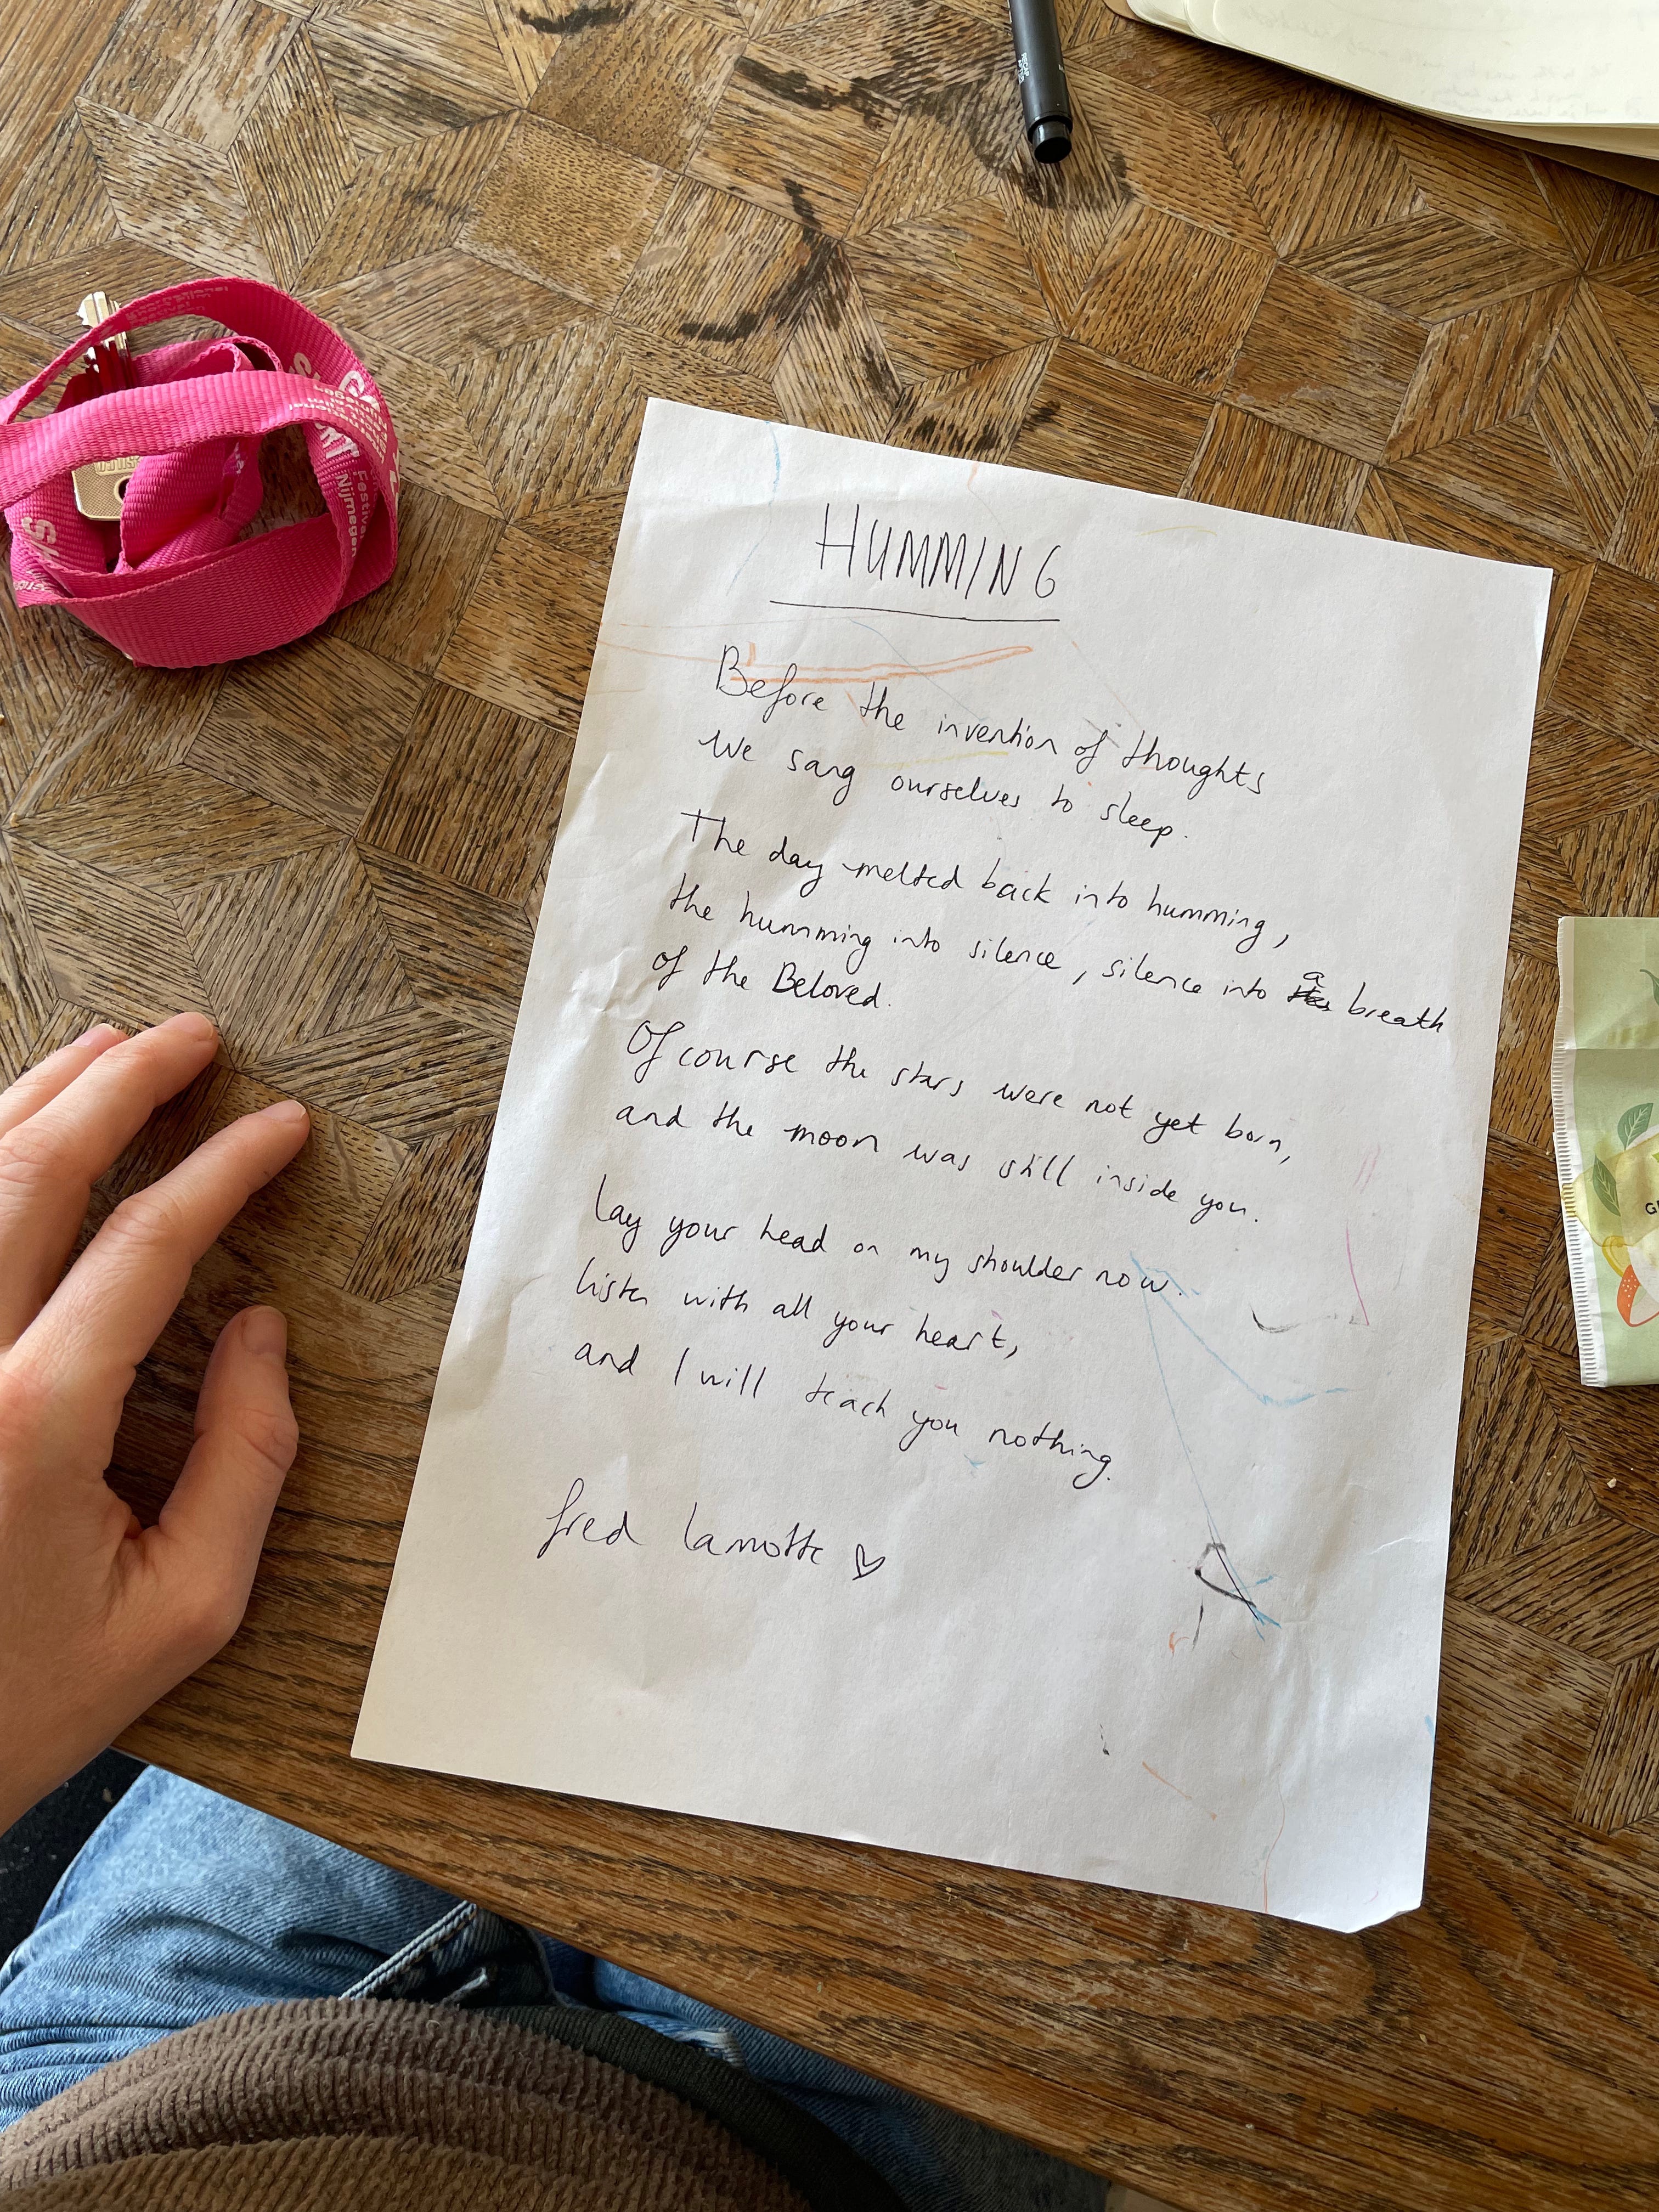 HUMMING
Before the invention of thoughts
We sang ourselves to sleep.
The day melted back into humming,
the humming into silence, silence into a breath
of the Beloved.
Of course the stars were not yet born,
and the moon was still inside you.
Lay your head on my shoulder now.
Listen with all your heart,
and I will teach you nothing.
fred lamotte
Festival
Nijmegen